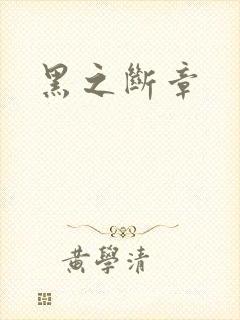 黑之斷章
黃學清